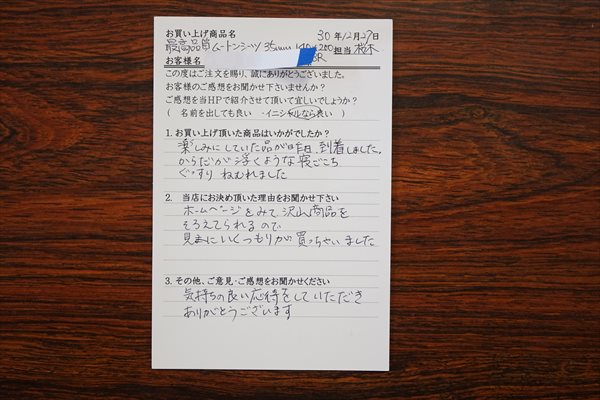 お買い上げ商品名 30年12月29日
最高品質ムートンシーツ 35mm 140×200 担当 柏木
お客様名
この度はご注文を賜り、誠にありがとうございました。
お客様のご感想をお聞かせ下さいませんか？
ご感想を当HPで紹介させて頂いて宜しいでしょうか？
（ 名前を出しても良い ・イニシャルなら良い ）
1.お買い上げ頂いた商品はいかがでしたか？
楽しみにしていた品が昨日、到着しました。
からだが浮くような寝ごこち
ぐっすり ねむれました
2. 当店にお決め頂いた理由をお聞かせ下さい
ホームページをみて沢山商品を
そろえてられるので
見まにいくつもりが買っちゃいました
3. その他、ご意見・ご感想をお聞かせください
気持ちの良い応待をしていただき
ありがとうございます